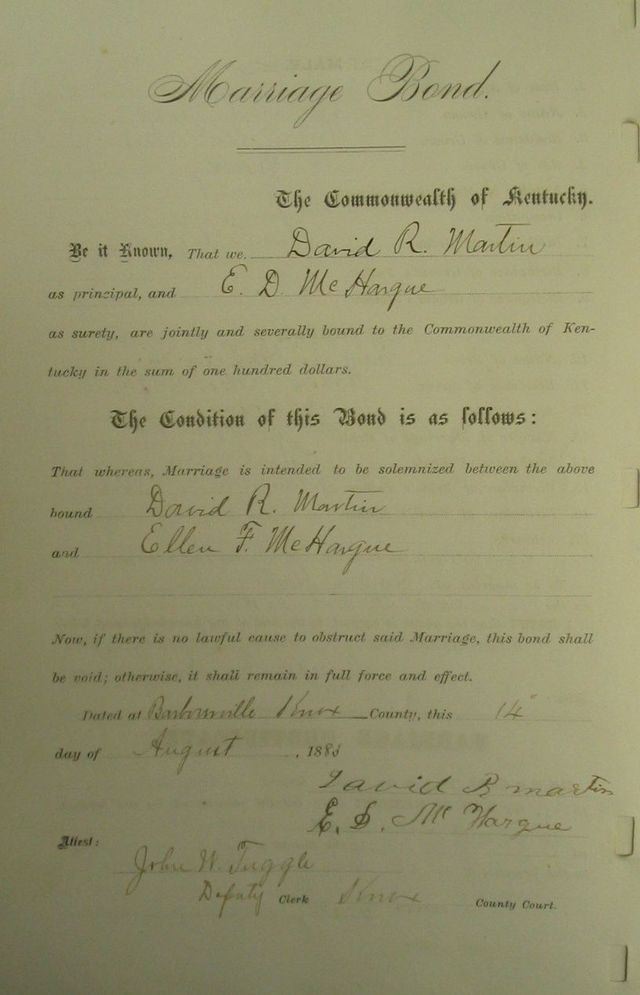 Marriage Bond.
The Commonwealth of Kentucky.
Be it Known, That we. David R. Martin
as principal, and E. D. McHargue
as surety, are jointly and severally bound to the Commonwealth of Ken-
tucky in the sum of one hundred dollars.
The Condition of this Bond is as follows:
That whereas, Marriage is intended to be solemnized between the above
bound David R. Martin
and Ellen F. McHargue
Now, if there is no lawful cause to obstruct said Marriage, this bond shall
be void; otherwise, it shall remain in full force and effect.
Dated at Barbourville Knox County, this 14
day of August, 188
David R martin
E. D. McHargue
Attest:
John W. Tuggle
Deputy Clerk Knox County Court.